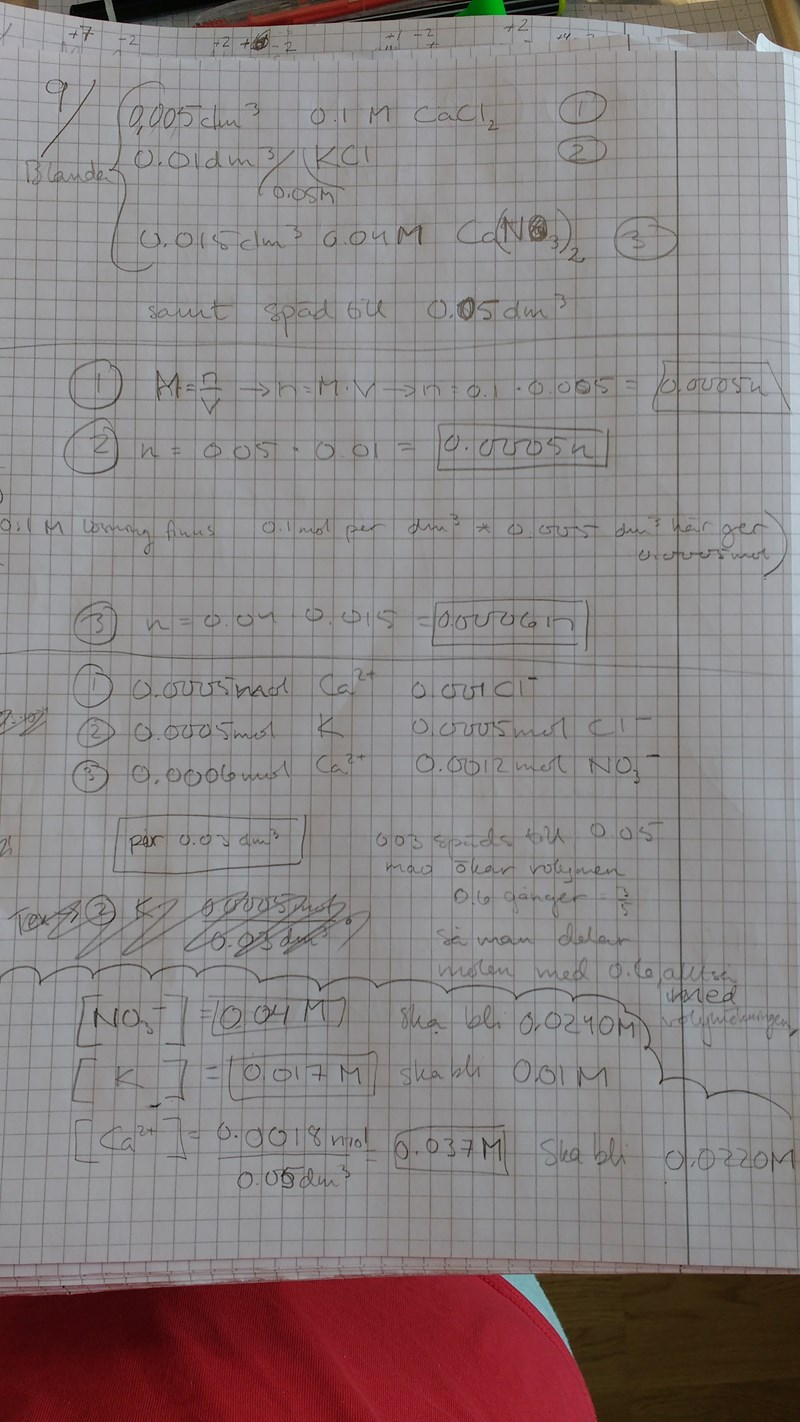 +7 -2 +2 +6 -2 +1 -2 +2
9/
0,005dm³ 0.1 M CaCl₂ ①
Blandar
0.01dm³ KCl ②
0.05M
0.015dm³ 0.04M Ca(NO₃)₂ ③
samt späd till 0.05dm³
① M=n/V → n=M·V → n=0.1 · 0.005 = 0.0005n
② n = 0.05 · 0.01 = 0.0005n
0.1 M lösning finns 0.1mol per dm³ * 0.005 dm³ här ger
0.0005mol)
③ n = 0.04 0.015 = 0.0006n
① 0.0005mol Ca²⁺ 0.001Cl⁻
② 0.0005mol K 0.0005mol Cl⁻
③ 0.0006mol Ca²⁺ 0.0012mol NO₃⁻
per 0.03 dm³
0.03 späds till 0.05
mao ökar volymen
0.6 gånger = 3/5
så man delar
molen med 0.6, alltså
med
volymökningen
② K 0.0005mol
0.03dm³
[NO₃⁻] = 0.04 M ska bli 0.0240M
[K] = 0.017 M ska bli 0.01M
[Ca²⁺] = 0.0018mol / 0.05dm³ = 0.037M ska bli 0.0220M